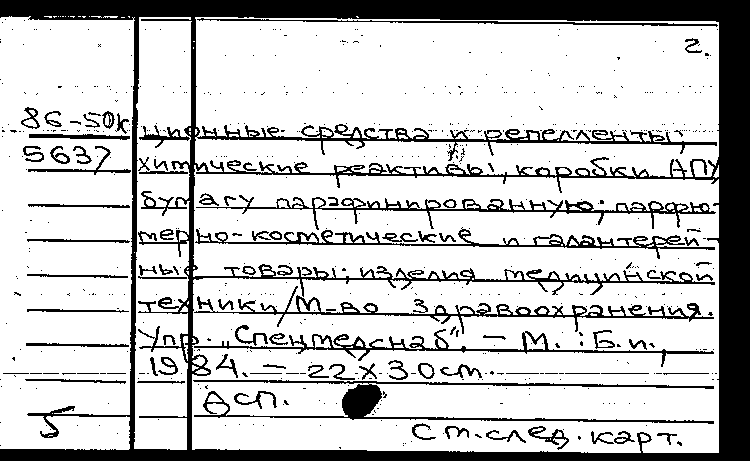 2.
86-50к ционные средства и репелленты;
5637 химические реактивы, коробки АПУ
бумагу парафинированную; парфю-
мерно-косметические и галантерей-
ные товары; изделия медицинской
техники/М-во здравоохранения.
Упр. „Спецмедснаб“. – М. : Б.и.,
1984. – 22х30см.
ДСП.
5 См.след.карт.